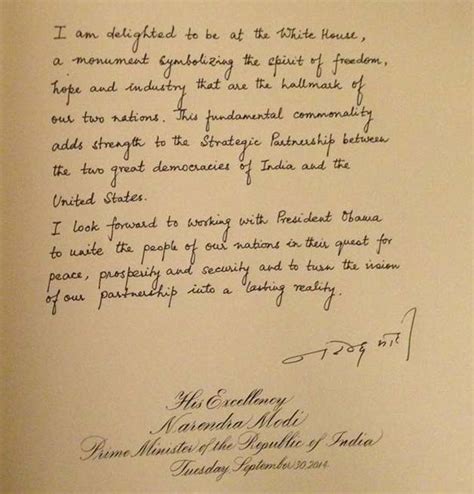 I am delighted to be at the White House,
a monument symbolizing the spirit of freedom,
hope and industry that are the hallmark of
our two nations. This fundamental commonality
adds strength to the Strategic Partnership between
the two great democracies of India and the
United States.
I look forward to working with President Obama
to unite the people of our nations in their quest for
peace, prosperity and security and to turn the vision
of our partnership into a lasting reality.
His Excellency
Narendra Modi
Prime Minister of the Republic of India
Tuesday, September 30, 2014